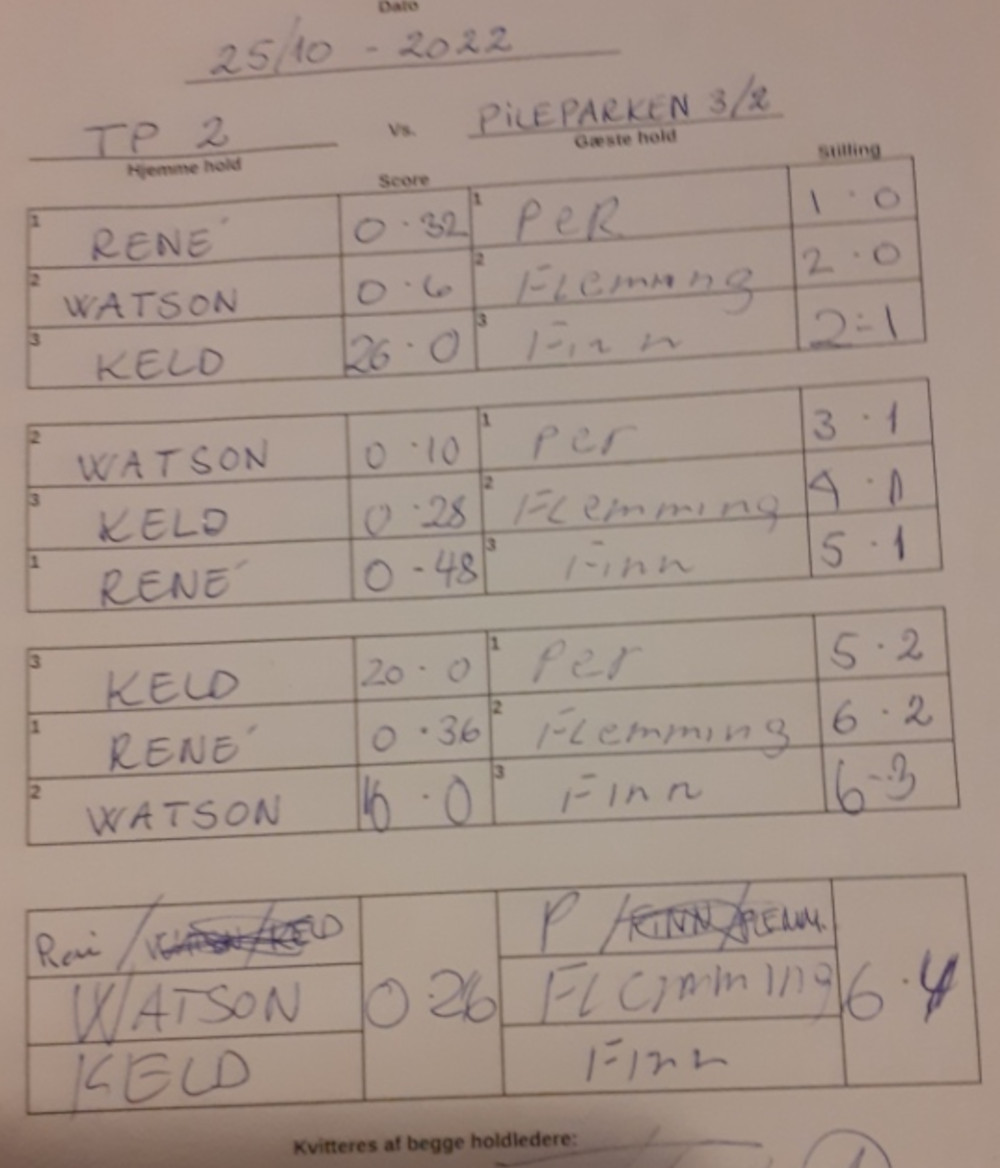 Dato
25/10 - 2022
TP 2 Vs. PILEPARKEN 3/2
Hjemme hold Gæste hold
Score Stilling
1 RENÉ 0·32 1 PER 1·0
2 WATSON 0·6 2 Flemming 2·0
3 KELD 26·0 3 Finn 2-1
2 WATSON 0·10 1 Per 3·1
3 KELD 0·28 2 Flemming 4·1
1 RENÉ 0-48 3 Finn 5·1
3 KELD 20·0 1 Per 5·2
1 RENÉ 0·36 2 Flemming 6·2
2 WATSON 16·0 3 Finn 6-3
/ KELD P / FINN / FLEMM.
WATSON 0·26 Flemming 6·4
KELD Finn
Kvitteres af begge holdledere: